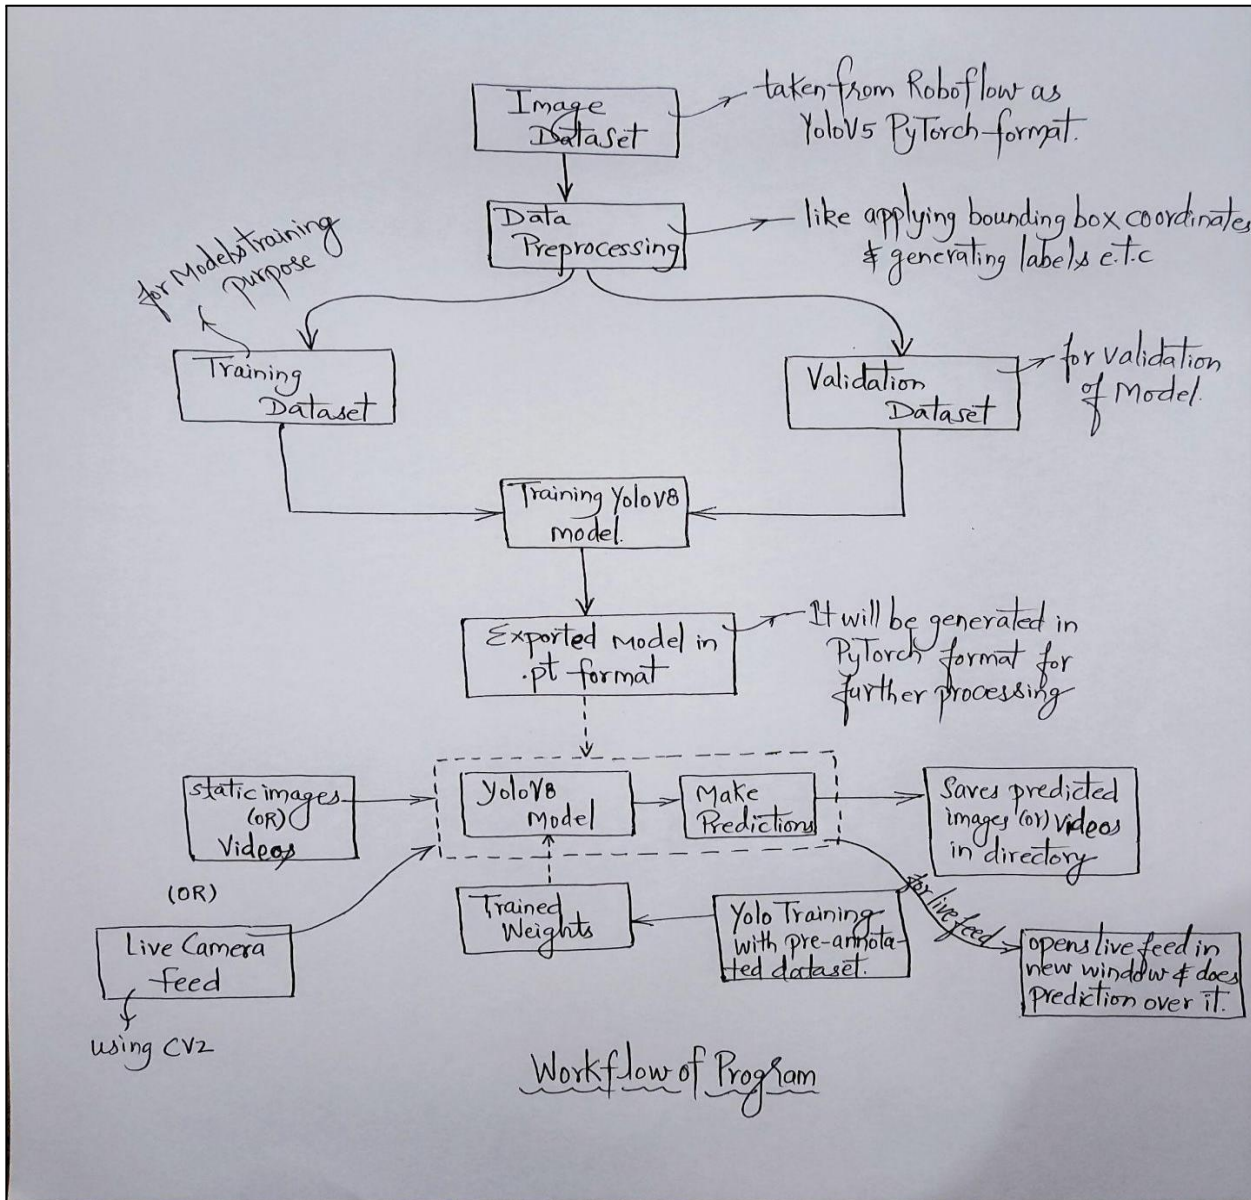 Image
Dataset
taken from Roboflow as
YoloV5 PyTorch format.
Data
Preprocessing
like applying bounding box coordinates
& generating labels e.t.c
for Models training
purpose
Training
Dataset
Validation
Dataset
for validation
of Model.
Training YoloV8
model.
Exported Model in
.pt format
It will be generated in
PyTorch format for
further processing
static images
(OR)
Videos
YoloV8
Model
Make
Predictions
Saves predicted
images (or) videos
in directory
(OR)
Live Camera
feed
using CV2
Trained
Weights
Yolo Training
with pre-annota-
ted dataset.
for live feed
opens live feed in
new window & does
prediction over it.
Workflow of Program